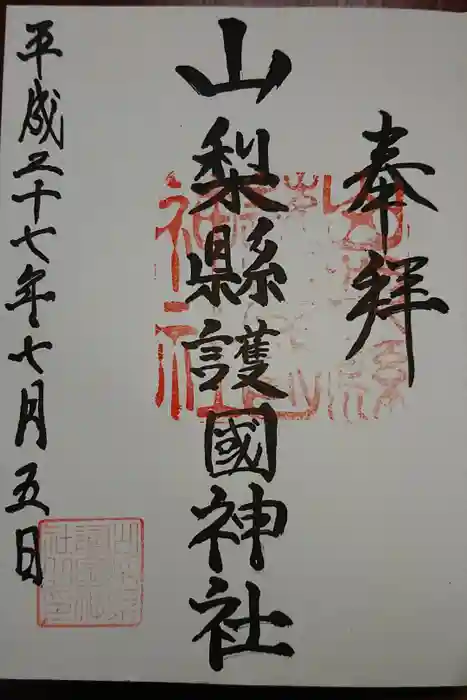 奉拜
山梨縣護國神社
平成二十七年七月五日